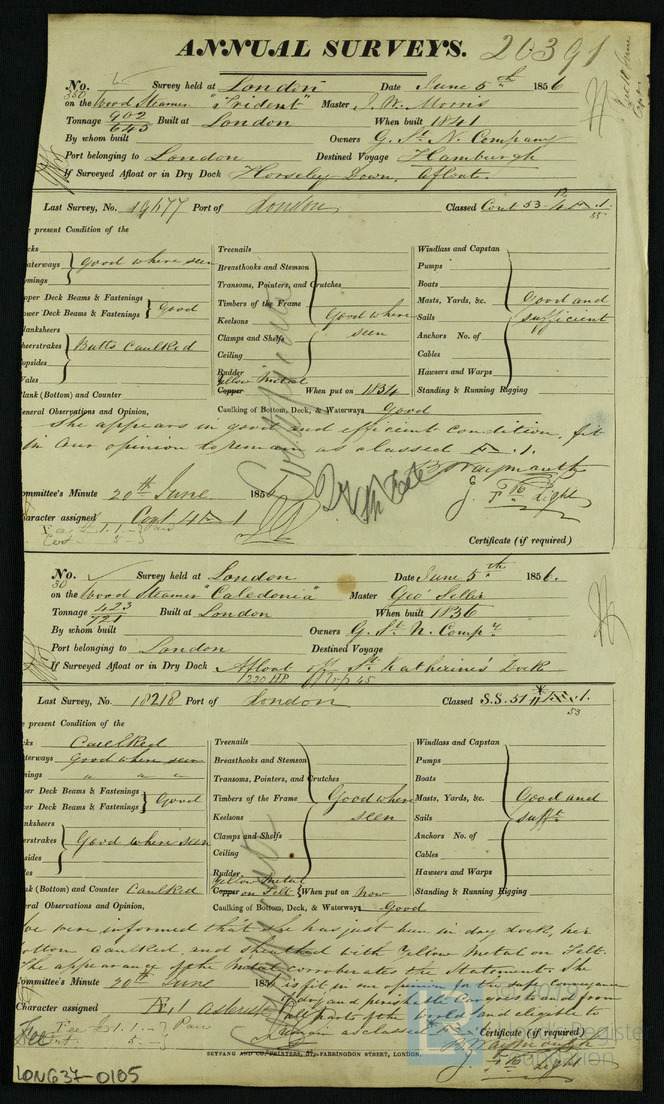 ANNUAL SURVEYS. 20391
No. 350 Survey held at London Date June 5th 1856
on the Wood Steamer "Trident" Master J. W. Morris
Tonnage 902/645 Built at London When built 1841
By whom built Owners G. St. N. Company
Port belonging to London Destined Voyage Hamburgh
If Surveyed Afloat or in Dry Dock Horsley Down, Afloat.
Last Survey, No. 19677 Port of London Classed Cont 53
present Condition of the
Treenails Windlass and Capstan
good where seen Breasthooks and Stemson Pumps
Transoms, Pointers, and Crutches Boats
pper Deck Beams & Fastenings Timbers of the Frame Masts, Yards, &c. Good and
ower Deck Beams & Fastenings good Keelsons Good where Sails sufficient
lanksheers Clamps and Shelfs seen Anchors No. of
heerstrakes Butts Caulked Ceiling Cables
opsides Rudder Hawsers and Warps
Wales Yellow Metal
lank (Bottom) and Counter Copper When put on 1854 Standing & Running Rigging
eneral Observations and Opinion, Caulking of Bottom, Deck, & Waterways Good
She appears in good and efficient condition, fit
in our opinion to remain as classed Æ.1.
B Waymouth
ommittee's Minute 20th June 185
Light
haracter assigned Cont 4 Æ 1
Certificate (if required)
No. 30 Survey held at London Date June 5th 1856.
on the Wood Steamer "Caledonia" Master Geo' Seller
Tonnage 423/721 Built at London When built 1836
By whom built Owners G. St. N. Compy
Port belonging to London Destined Voyage
If Surveyed Afloat or in Dry Dock Afloat off St Katherine's Dock
220 HP
Last Survey, No. 18218 Port of London Classed S.S. 51 * Æ.1.
53
present Condition of the
ks Caulked Treenails Windlass and Capstan
terways Good where seen Breasthooks and Stemson Pumps
nings " " " Transoms, Pointers, and Crutches Boats
per Deck Beams & Fastenings Timbers of the Frame Good where Masts, Yards, &c. Good and
er Deck Beams & Fastenings Good Keelsons seen Sails sufft
nksheers Clamps and Shelfs Anchors No. of
erstrakes Good where seen Ceiling Cables
sides Rudder Hawsers and Warps
es Yellow Metal
nk (Bottom) and Counter Caulked Copper on Felt When put on now Standing & Running Rigging
ral Observations and Opinion, Caulking of Bottom, Deck, & Waterways Good
we were informed that she has just been in dry dock, her
bottom caulked, and sheathed with Yellow Metal on Felt.
The appearance of the metal corroborates the Statement. She
ommittee's Minute 20th June 185 is fit in our opinion for the safe Conveyance
of dry and perishable Cargoes to and from
Character assigned Æ,1 asterisk all parts of the World and eligible to
remain as classed Æ Certificate (if required)
B. Waymouth
Light
SEYFANG AND CO., PRINTERS, 57, FARRINGDON STREET, LONDON.
LON637-0105